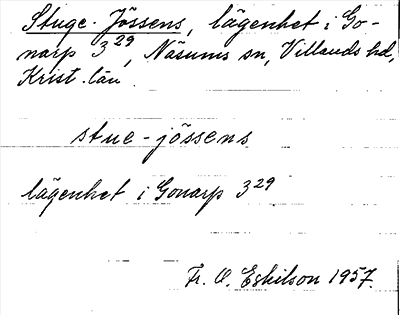 Stuge-Jössens, lägenhet i Go-
narp 3²⁹, Näsums sn, Villands hd,
Krist. län.
stue-jössens
lägenhet i Gonarp 3²⁹
Fr. O. Eskilson 1957.